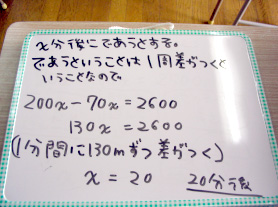 x分後にであうとする。
であうということは1周差がつくと
いうことなので
200x-70x=2600
130x=2600
(1分間に130mずつ差がつく)
x=20
20分後